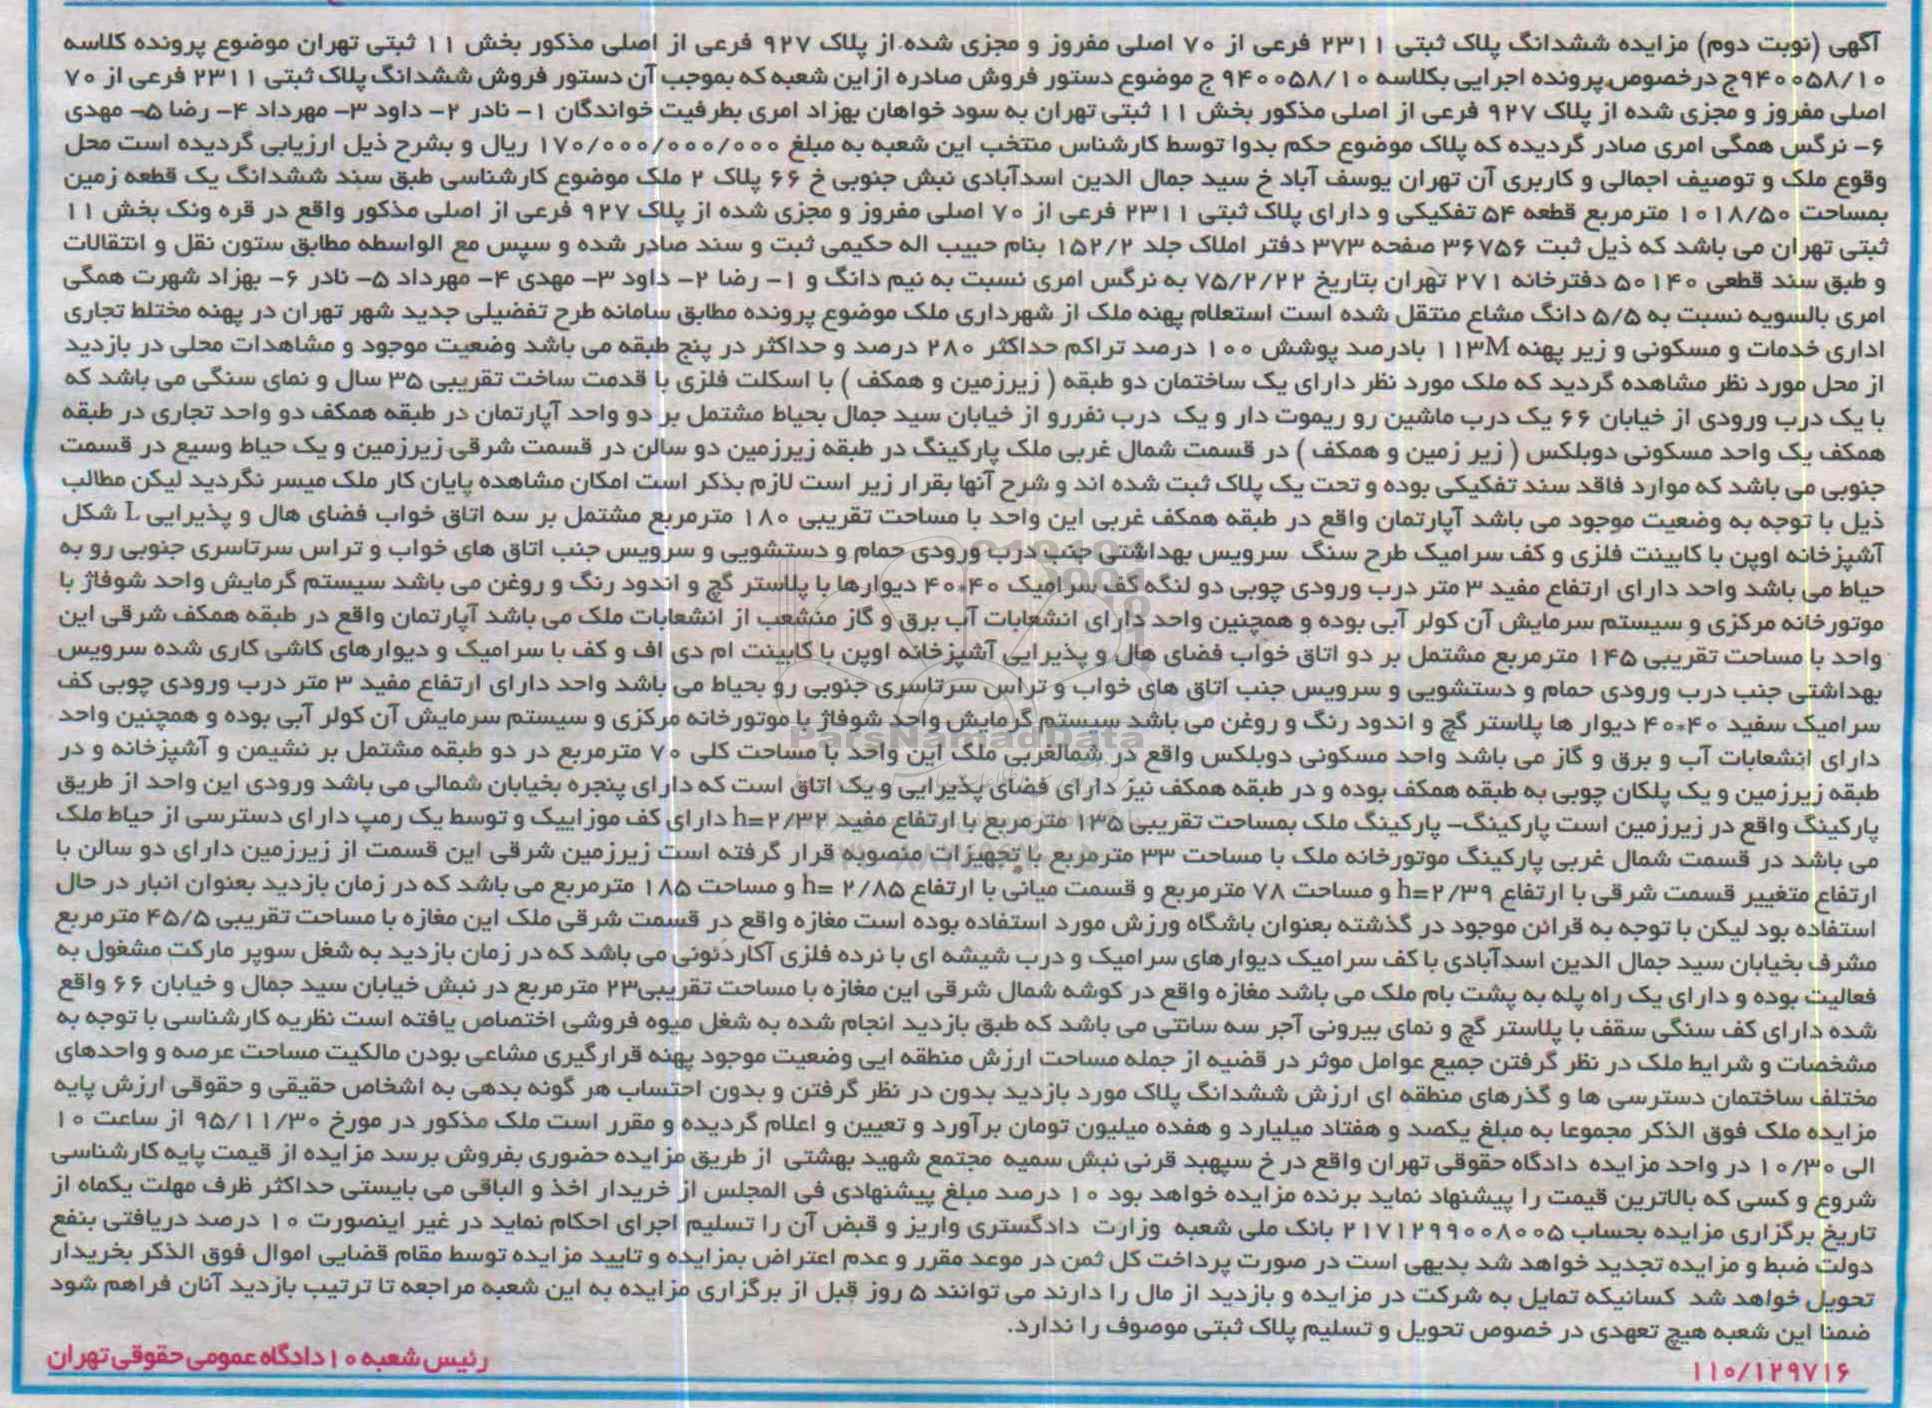 آگهی (نوبت دوم) مزایده ششدانگ پلاک ثبتی ۲۳۱۱ فرعی از ۷۰ اصلی مفروز و مجزی شده از پلاک ۹۲۷ فرعی از اصلی مذکور بخش ۱۱ ثبتی تهران موضوع پرونده کلاسه
۹۴۰۰۵۸/۱۰ج درخصوص پرونده اجرایی بکلاسه ۹۴۰۰۵۸/۱۰ ج موضوع دستور فروش صادره از این شعبه که بموجب آن دستور فروش ششدانگ پلاک ثبتی ۲۳۱۱ فرعی از ۷۰
اصلی مفروز و مجزی شده از پلاک ۹۲۷ فرعی از اصلی مذکور بخش ۱۱ ثبتی تهران به سود خواهان بهزاد امری بطرفیت خواندگان ۱- نادر ۲- داود ۳- مهرداد ۴- رضا ۵- مهدی
۶- نرگس همگی امری صادر گردیده که پلاک موضوع حکم بدوا توسط کارشناس منتخب این شعبه به مبلغ ۱۷۰/۰۰۰/۰۰۰/۰۰۰ ریال و بشرح ذیل ارزیابی گردیده است محل
وقوع ملک و توصیف اجمالی و کاربری آن تهران یوسف آباد خ سید جمال الدین اسدآبادی نبش جنوبی خ ۶۶ پلاک ۲ ملک موضوع کارشناسی طبق سند ششدانگ یک قطعه زمین
بمساحت ۱۰۱۸/۵۰ مترمربع قطعه ۵۴ تفکیکی و دارای پلاک ثبتی ۲۳۱۱ فرعی از ۷۰ اصلی مفروز و مجزی شده از پلاک ۹۲۷ فرعی از اصلی مذکور واقع در قره ونک بخش ۱۱
ثبتی تهران می باشد که ذیل ثبت ۳۶۷۵۶ صفحه ۳۷۳ دفتر املاک جلد ۱۵۲/۲ بنام حبیب اله حکیمی ثبت و سند صادر شده و سپس مع الواسطه مطابق ستون نقل و انتقالات
و طبق سند قطعی ۵۰۱۴۰ دفترخانه ۲۷۱ تهران بتاریخ ۷۵/۲/۲۲ به نرگس امری نسبت به نیم دانگ و ۱- رضا ۲- داود ۳- مهدی ۴- مهرداد ۵- نادر ۶- بهزاد شهرت همگی
امری بالسویه نسبت به ۵/۵ دانگ مشاع منتقل شده است استعلام پهنه ملک از شهرداری ملک موضوع پرونده مطابق سامانه طرح تفضیلی جدید شهر تهران در پهنه مختلط تجاری
اداری خدمات و مسکونی و زیر پهنه M۱۱۳ بادرصد پوشش ۱۰۰ درصد تراکم حداکثر ۲۸۰ درصد و حداکثر در پنج طبقه می باشد وضعیت موجود و مشاهدات محلی در بازدید
از محل مورد نظر مشاهده گردید که ملک مورد نظر دارای یک ساختمان دو طبقه ( زیرزمین و همکف ) با اسکلت فلزی با قدمت ساخت تقریبی ۳۵ سال و نمای سنگی می باشد که
با یک درب ورودی از خیابان ۶۶ یک درب ماشین رو ریموت دار و یک درب نفررو از خیابان سید جمال بحیاط مشتمل بر دو واحد آپارتمان در طبقه همکف دو واحد تجاری در طبقه
همکف یک واحد مسکونی دوبلکس ( زیر زمین و همکف ) در قسمت شمال غربی ملک پارکینگ در طبقه زیرزمین دو سالن در قسمت شرقی زیرزمین و یک حیاط وسیع در قسمت
جنوبی می باشد که موارد فاقد سند تفکیکی بوده و تحت یک پلاک ثبت شده اند و شرح آنها بقرار زیر است لازم بذکر است امکان مشاهده پایان کار ملک میسر نگردید لیکن مطالب
ذیل با توجه به وضعیت موجود می باشد آپارتمان واقع در طبقه همکف غربی این واحد با مساحت تقریبی ۱۸۰ مترمربع مشتمل بر سه اتاق خواب فضای هال و پذیرایی L شکل
آشپزخانه اوپن با کابینت فلزی و کف سرامیک طرح سنگ سرویس بهداشتی جنب درب ورودی حمام و دستشویی و سرویس جنب اتاق های خواب و تراس سرتاسری جنوبی رو به
حیاط می باشد واحد دارای ارتفاع مفید ۳ متر درب ورودی چوبی دو لنگه کف سرامیک ۴۰*۴۰ دیوارها با پلاستر گچ و اندود رنگ و روغن می باشد سیستم گرمایش واحد شوفاژ با
موتورخانه مرکزی و سیستم سرمایش آن کولر آبی بوده و همچنین واحد دارای انشعابات آب برق و گاز منشعب از انشعابات ملک می باشد آپارتمان واقع در طبقه همکف شرقی این
واحد با مساحت تقریبی ۱۴۵ مترمربع مشتمل بر دو اتاق خواب فضای هال و پذیرایی آشپزخانه اوپن با کابینت ام دی اف و کف با سرامیک و دیوارهای کاشی کاری شده سرویس
بهداشتی جنب درب ورودی حمام و دستشویی و سرویس جنب اتاق های خواب و تراس سرتاسری جنوبی رو بحیاط می باشد واحد دارای ارتفاع مفید ۳ متر درب ورودی چوبی کف
سرامیک سفید ۴۰*۴۰ دیوار ها پلاستر گچ و اندود رنگ و روغن می باشد سیستم گرمایش واحد شوفاژ با موتورخانه مرکزی و سیستم سرمایش آن کولر آبی بوده و همچنین واحد
دارای انشعابات آب و برق و گاز می باشد واحد مسکونی دوبلکس واقع در شمالغربی ملک این واحد با مساحت کلی ۷۰ مترمربع در دو طبقه مشتمل بر نشیمن و آشپزخانه و در
طبقه زیرزمین و یک پلکان چوبی به طبقه همکف بوده و در طبقه همکف نیز دارای فضای پذیرایی و یک اتاق است که دارای پنجره بخیابان شمالی می باشد ورودی این واحد از طریق
پارکینگ واقع در زیرزمین است پارکینگ- پارکینگ ملک بمساحت تقریبی ۱۳۵ مترمربع با ارتفاع مفید h=۲/۳۲ دارای کف موزاییک و توسط یک رمپ دارای دسترسی از حیاط ملک
می باشد در قسمت شمال غربی پارکینگ موتورخانه ملک با مساحت ۳۳ مترمربع با تجهیزات منصوبه قرار گرفته است زیرزمین شرقی این قسمت از زیرزمین دارای دو سالن با
ارتفاع متغییر قسمت شرقی با ارتفاع h=۲/۳۹ و مساحت ۷۸ مترمربع و قسمت میانی با ارتفاع h= ۲/۸۵ و مساحت ۱۸۵ مترمربع می باشد که در زمان بازدید بعنوان انبار در حال
استفاده بود لیکن با توجه به قرائن موجود در گذشته بعنوان باشگاه ورزش مورد استفاده بوده است مغازه واقع در قسمت شرقی ملک این مغازه با مساحت تقریبی ۴۵/۵ مترمربع
مشرف بخیابان سید جمال الدین اسدآبادی با کف سرامیک دیوارهای سرامیک و درب شیشه ای با نرده فلزی آکاردئونی می باشد که در زمان بازدید به شغل سوپر مارکت مشغول به
فعالیت بوده و دارای یک راه پله به پشت بام ملک می باشد مغازه واقع در گوشه شمال شرقی این مغازه با مساحت تقریبی۲۳ مترمربع در نبش خیابان سید جمال و خیابان ۶۶ واقع
شده دارای کف سنگی سقف با پلاستر گچ و نمای بیرونی آجر سه سانتی می باشد که طبق بازدید انجام شده به شغل میوه فروشی اختصاص یافته است نظریه کارشناسی با توجه به
مشخصات و شرایط ملک در نظر گرفتن جمیع عوامل موثر در قضیه از جمله مساحت ارزش منطقه ایی وضعیت موجود پهنه قرارگیری مشاعی بودن مالکیت مساحت عرصه و واحدهای
مختلف ساختمان دسترسی ها و گذرهای منطقه ای ارزش ششدانگ پلاک مورد بازدید بدون در نظر گرفتن و بدون احتساب هر گونه بدهی به اشخاص حقیقی و حقوقی ارزش پایه
مزایده ملک فوق الذکر مجموعا به مبلغ یکصد و هفتاد میلیارد و هفده میلیون تومان برآورد و تعیین و اعلام گردیده و مقرر است ملک مذکور در مورخ ۹۵/۱۱/۳۰ از ساعت ۱۰
الی ۱۰/۳۰ در واحد مزایده دادگاه حقوقی تهران واقع در خ سپهبد قرنی نبش سمیه مجتمع شهید بهشتی از طریق مزایده حضوری بفروش برسد مزایده از قیمت پایه کارشناسی
شروع و کسی که بالاترین قیمت را پیشنهاد نماید برنده مزایده خواهد بود ۱۰ درصد مبلغ پیشنهادی فی المجلس از خریدار اخذ و الباقی می بایستی حداکثر ظرف مهلت یکماه از
تاریخ برگزاری مزایده بحساب ۲۱۷۱۲۹۹۰۰۸۰۰۵ بانک ملی شعبه وزارت دادگستری واریز و قبض آن را تسلیم اجرای احکام نماید در غیر اینصورت ۱۰ درصد دریافتی بنفع
دولت ضبط و مزایده تجدید خواهد شد بدیهی است در صورت پرداخت کل ثمن در موعد مقرر و عدم اعتراض بمزایده و تایید مزایده توسط مقام قضایی اموال فوق الذکر بخریدار
تحویل خواهد شد کسانیکه تمایل به شرکت در مزایده و بازدید از مال را دارند می توانند ۵ روز قبل از برگزاری مزایده به این شعبه مراجعه تا ترتیب بازدید آنان فراهم شود
ضمنا این شعبه هیچ تعهدی در خصوص تحویل و تسلیم پلاک ثبتی موصوف را ندارد.
۱۱۰/۱۲۹۷۱۶
رئیس شعبه ۱۰ دادگاه عمومی حقوقی تهران
ParsNamadData